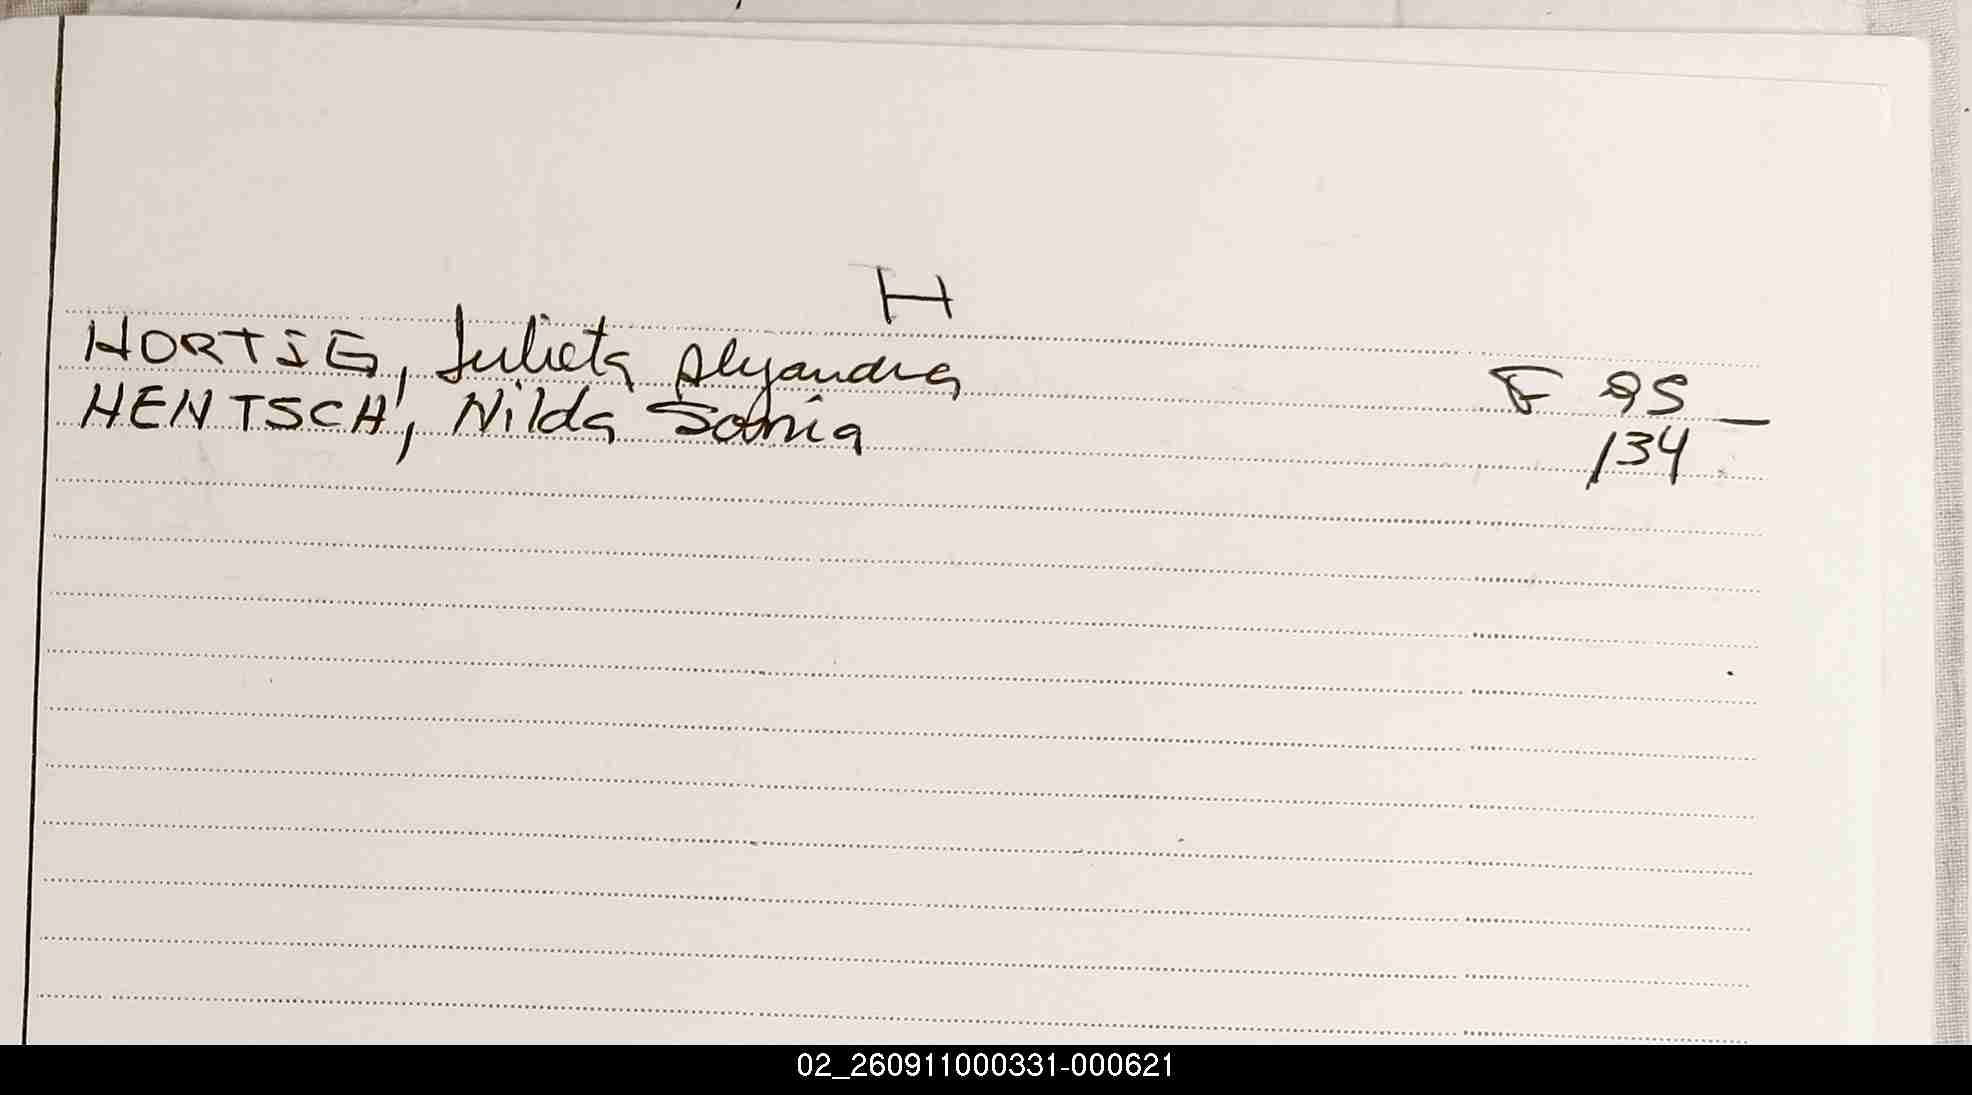 H
HORTIG, Julieta Alejandra F 95
HENTSCH, Nilda Sonia 134
02_260911000331-000621